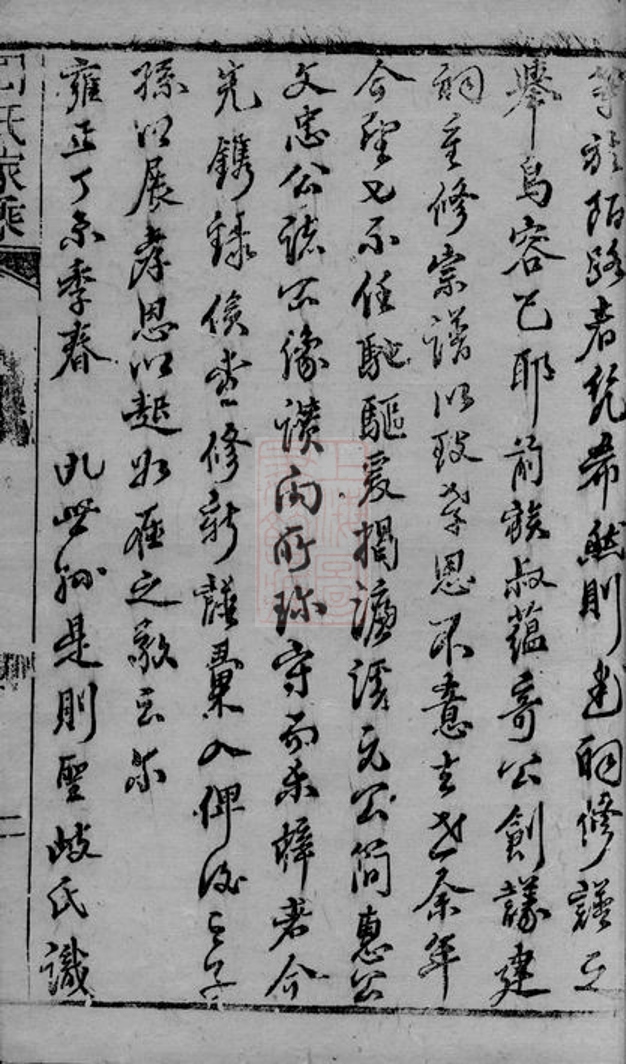 等於陌路者幾希然則建祠修譜之
舉烏容已耶前族叔蘊奇公創議建
祠重修宗譜以致孝思不意去世余年
今聖又不任馳驅爰揭濂溪元公簡惠公
文忠公諸公像讚向所珍守而未梓者今
先鐫錄俟重修新譜彙入俾後之子
孫以展孝思以起如在之敬云爾
雍正丁未季春 九世孫是則聖岐氏識
氏家乘